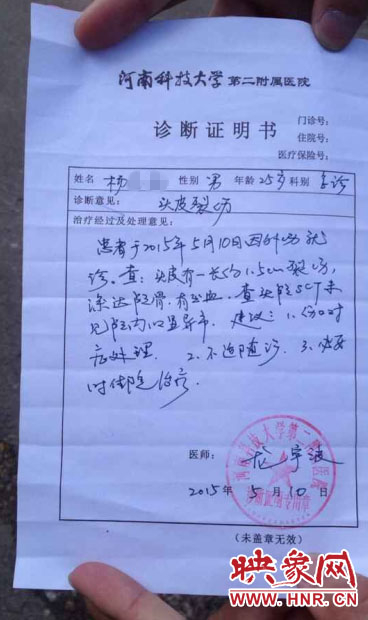 河南科技大学 第二附属医院
诊断证明书
门诊号:
住院号:
医疗保险号:
姓名 杨 性别 男 年龄 25岁 科别 急诊
诊断意见: 头皮裂伤
治疗经过及处理意见:
患者于2015年5月10日因外伤就
诊。查:头皮有一长约1.5cm裂伤,
深达颅骨,有出血。查头颅CT未
见颅内明显异常。建议:1.伤口对
症处理 2.不适随诊 3.必要
时住院治疗.
医师: 龙宇
2015年 5月 10日
河南科技大学第二附属医院
诊断证明专用章
(未盖章无效)
映象网
www.HNR.CN